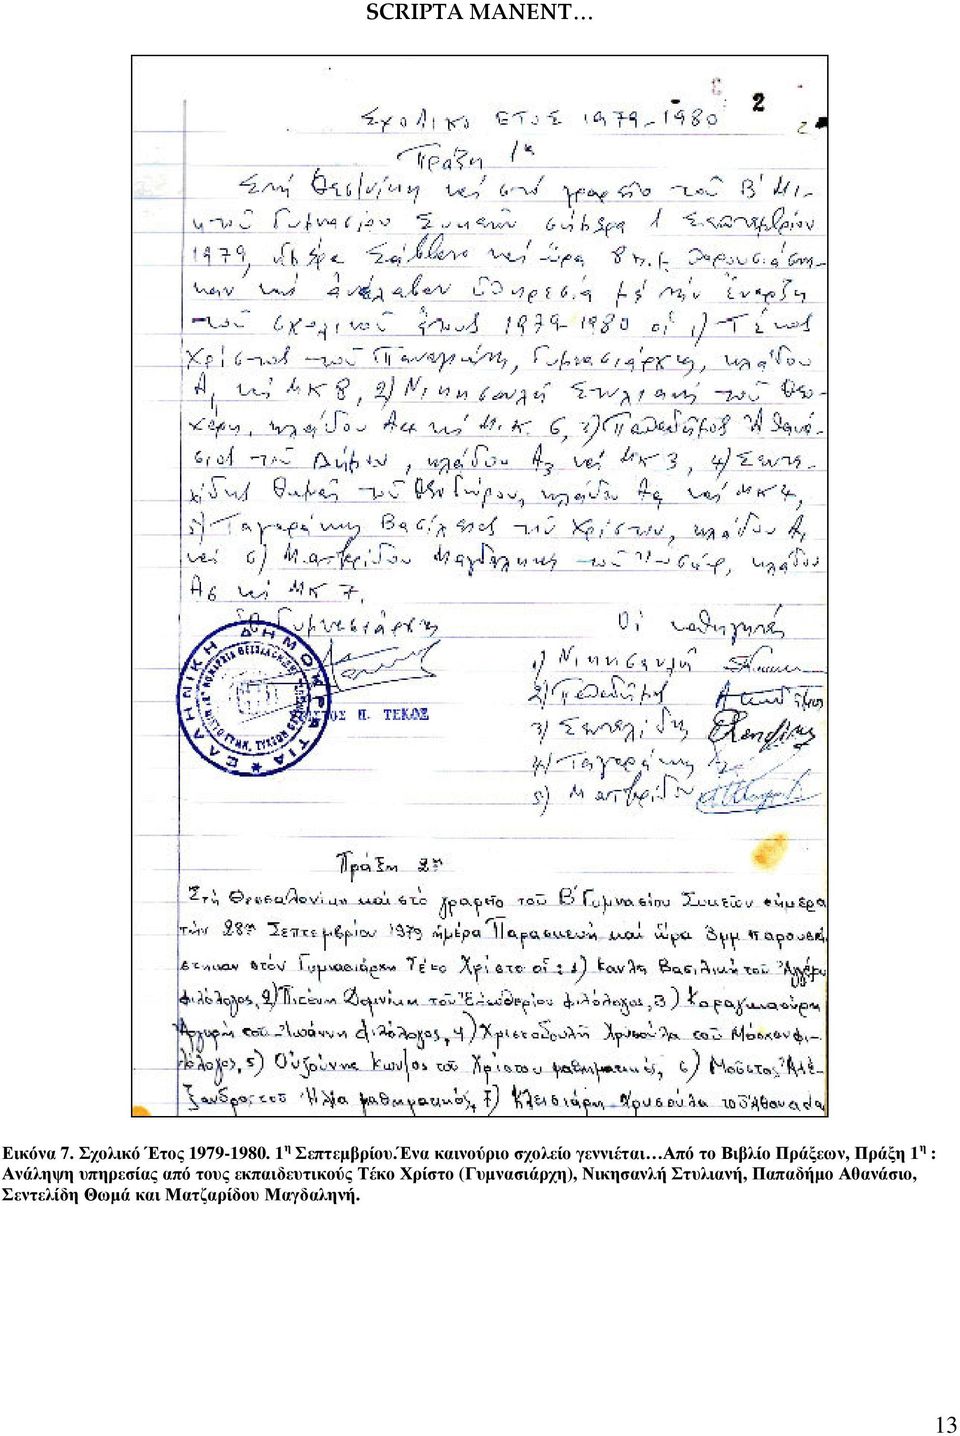 SCRIPTA MANENT…
2
Σχολικό ΕΤΟΣ 1979-1980
Πράξη 1η
Στή Θεσ/νίκη καί στό γραφείο τοῦ Β' Μι-
κτοῦ Γυμνασίου Συκεῶν σήμερα 1 Σεπτεμβρίου
1979, ἡμέρα Σάββατο καί ὥρα 8 π.μ. παρουσιάστη-
καν καί ἀνέλαβαν ὑπηρεσία μέ τήν ἔναρξη
τοῦ σχολικοῦ ἔτους 1979-1980 οἱ 1) Τέκος
Χρίστος τοῦ Παναγιώτη, Γυμνασιάρχης, κλάδου
Α1 καί ΜΚ 8, 2) Νικησανλή Στυλιανή τοῦ Θεο-
χάρη, κλάδου καί Μ.Κ. 6, 3) Παπαδήμος Ἀθανά-
σιος τοῦ Δήμου, κλάδου Α3 καί ΜΚ 3, 4) Σεντε-
λίδης Θωμάς τοῦ Θεοδώρου, κλάδου καί ΜΚ 4,
5) Ταγαράκης Βασίλειος τοῦ Χρίστου, κλάδου
καί 6) Ματζαρίδου Μαγδαληνή τοῦ κλάδου
Α6 καί ΜΚ 7.
Ὁ Γυμνασιάρχης Οἱ καθηγητές
ΕΛΛΗΝΙΚΗ ΔΗΜΟΚΡΑΤΙΑ
Π. ΤΕΚΟΣ
1) Νικησανλή
2) Παπαδήμος
3) Σεντελίδης
4) Ταγαράκης
5) Ματζαρίδου
Πράξη 2η
Στή Θεσσαλονίκη καί στό γραφεῖο τοῦ Β' Γυμνασίου Συκεῶν σήμερα
τήν 28η Σεπτεμβρίου 1979 ἡμέρα Παρασκευή καί ὥρα 3μμ παρουσιά-
στηκαν στόν Γυμνασιάρχη Τέκο Χρίστο οἱ: 1) Βασιλική τοῦ
φιλόλογος, 2) Πιτένη Δομνίκη τοῦ Ἐλευθερίου φιλόλογος, 3) Καραγκιαούρη
Ἀργυρή τοῦ Ἰωάννη φιλόλογος, 4) Χριστοδουλή Χρυσούλα τοῦ Μόσχου φι-
λόλογος, 5) Οὐζούνης Κων/νος τοῦ Χρίστου μαθηματικός, 6) Μούστος Ἀλέ-
ξανδρος τοῦ Ἠλία μαθηματικός, 7) Κλεισιάρη Χρυσούλα τοῦ Ἀθανασίου
Εικόνα 7. Σχολικό Έτος 1979-1980. 1η Σεπτεμβρίου.Ένα καινούριο σχολείο γεννιέται…Από το Βιβλίο Πράξεων, Πράξη 1η :
Ανάληψη υπηρεσίας από τους εκπαιδευτικούς Τέκο Χρίστο (Γυμνασιάρχη), Νικησανλή Στυλιανή, Παπαδήμο Αθανάσιο,
Σεντελίδη Θωμά και Ματζαρίδου Μαγδαληνή.
13